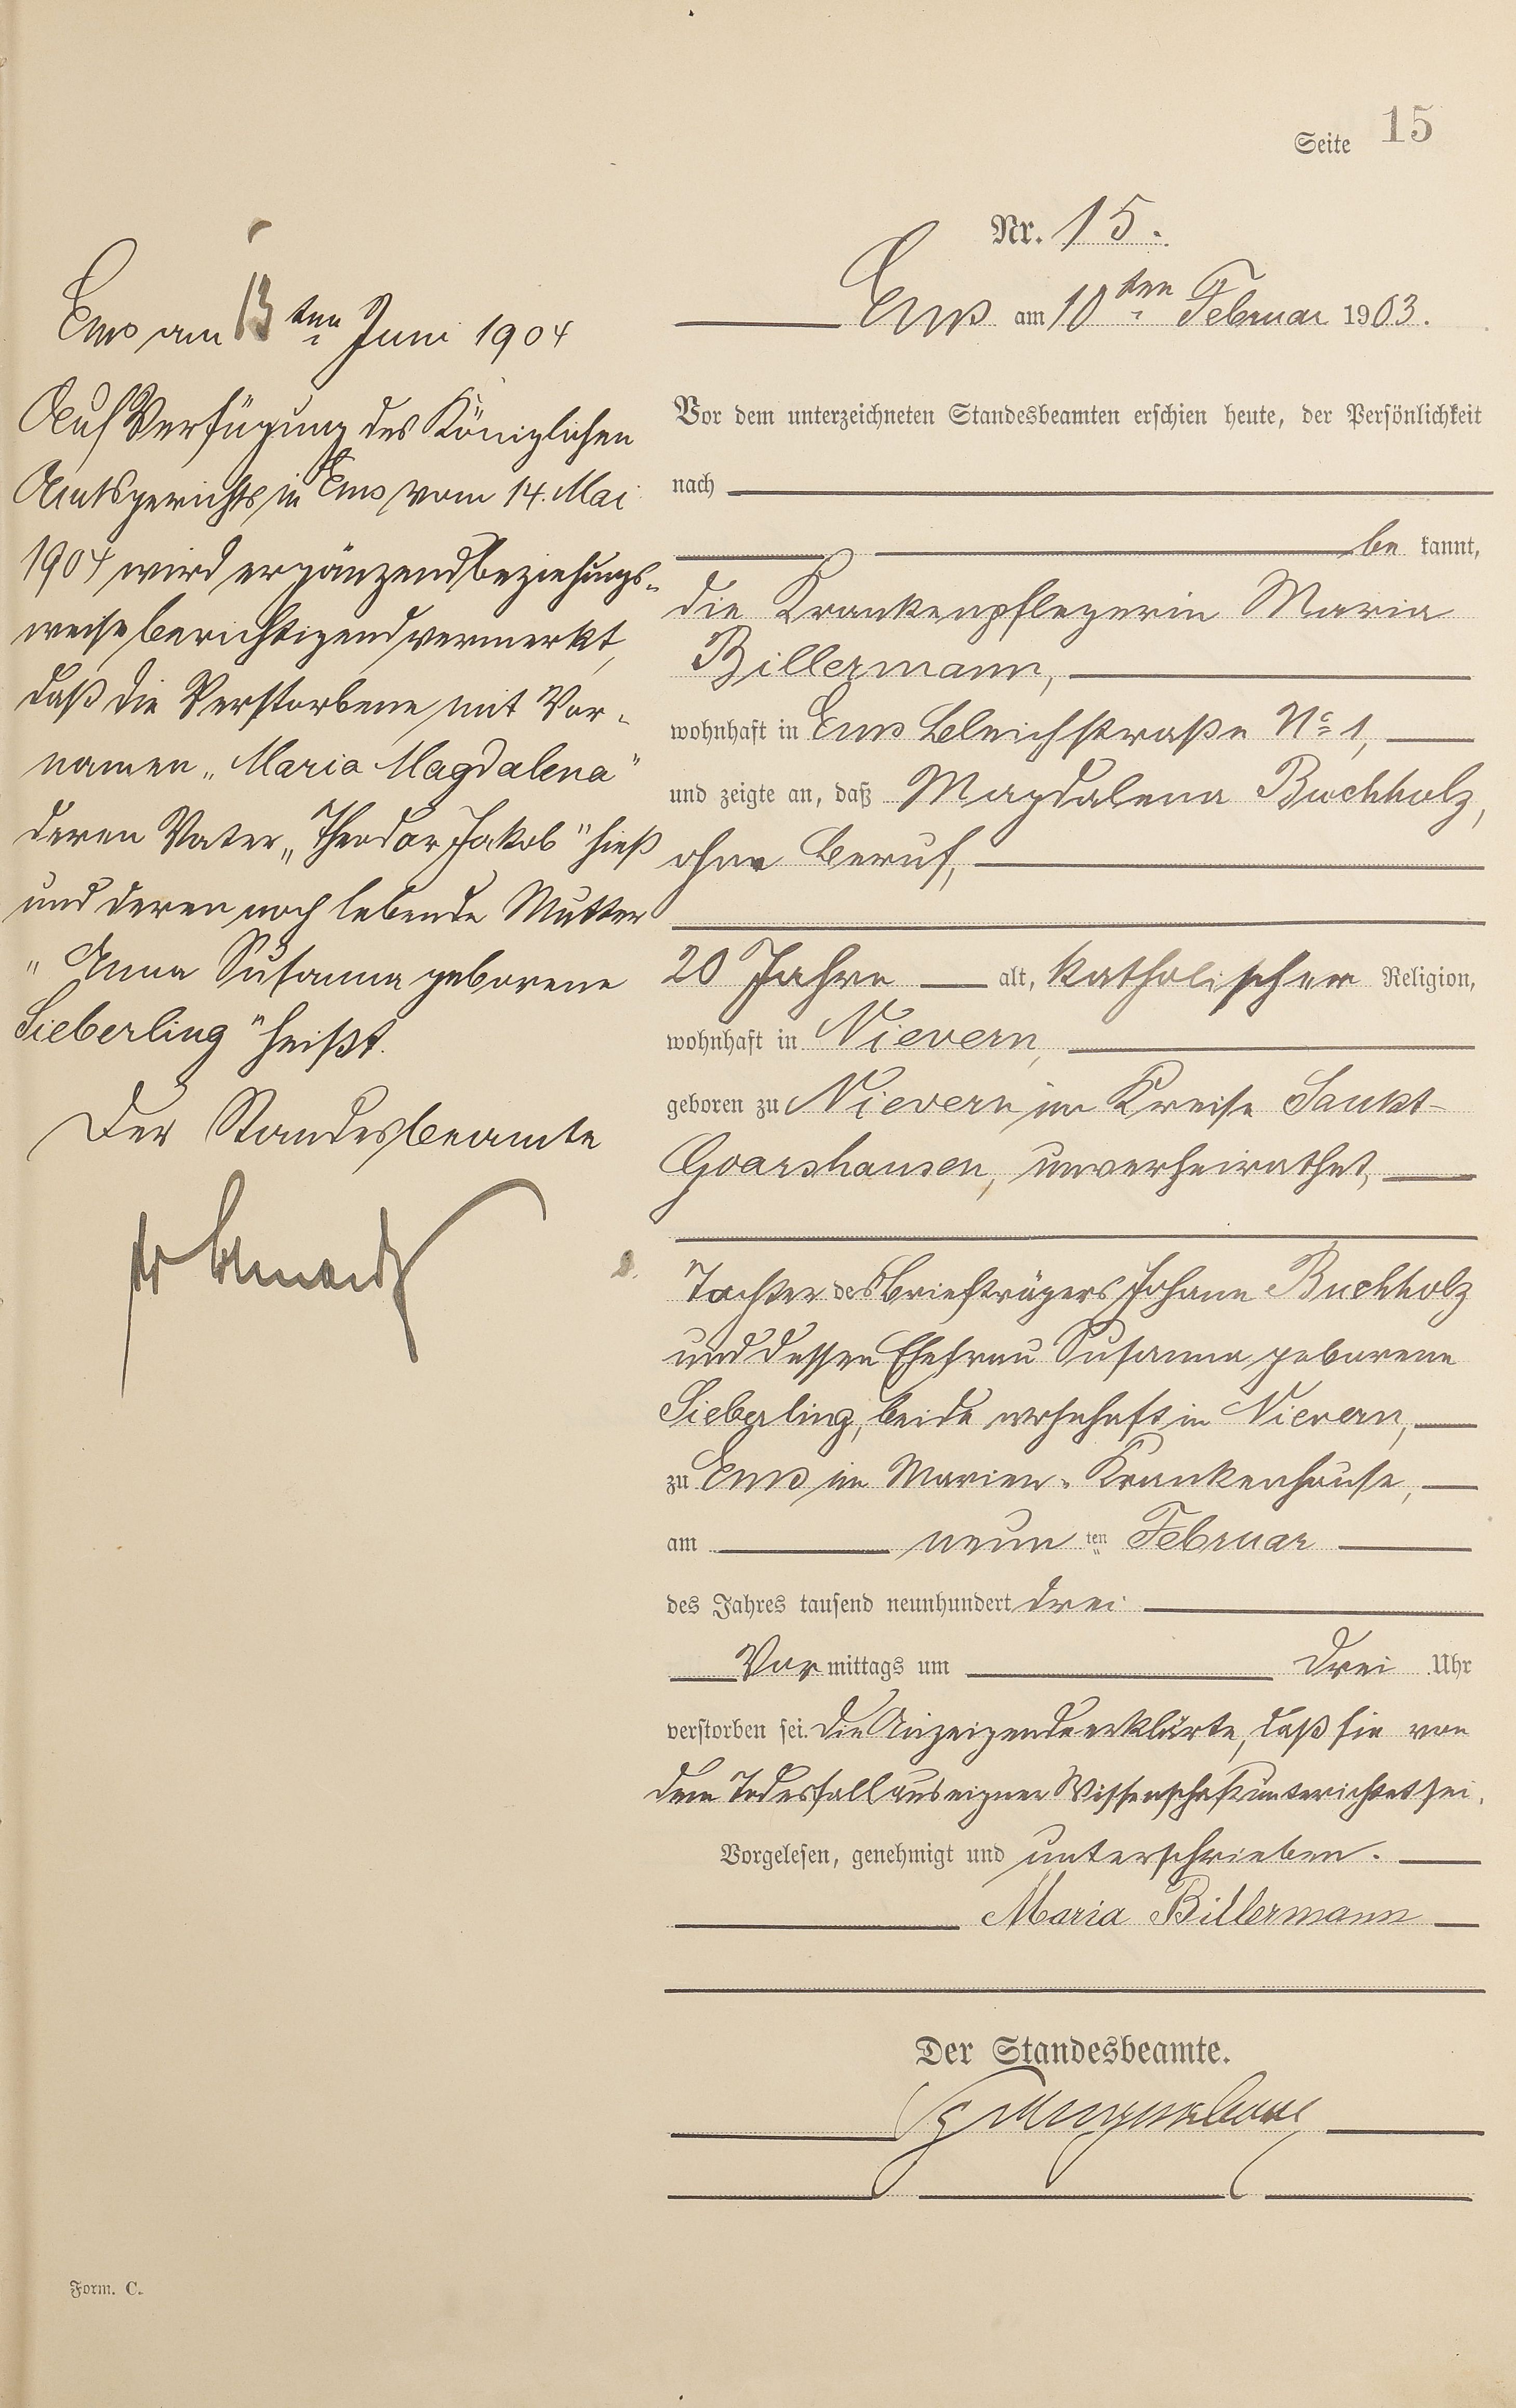 Seite 15
Nr. 15.
Ems am 10ten Februar 1903.
Vor dem unterzeichneten Standesbeamten erschien heute, der Persönlichkeit
nach
be kannt,
die Krankenpflegerin Maria
Billermann,
wohnhaft in Ems Bleichstraße No 1,
und zeigte an, daß Magdalena Buchholz,
ohne Beruf,
20 Jahre alt, katholischer Religion,
wohnhaft in Nievern,
geboren zu Nievern im Kreise Sankt-
Goarshausen, unverheirathet,
Tochter des Briefträgers Johann Buchholz
und dessen Ehefrau Susanna geborene
Sieberling, beide wohnhaft in Nievern,
zu Ems im Marien-Krankenhause,
am neun ten Februar
des Jahres tausend neunhundert drei
Vor mittags um drei Uhr
verstorben sei. Die Anzeigende erklärte, daß sie von
dem Todesfall aus eigner Wissenschaft unterichtet sei.
Vorgelesen, genehmigt und unterschrieben.
Maria Billermann
Der Standesbeamte.
Ems am 13ten Juni 1904
Auf Verfügung des Königlichen
Amtsgerichts in Ems vom 14. Mai
1904 wird ergänzend beziehungs-
weise berichtigend vermerkt,
daß die Verstorbene mit Vor-
namen „Maria Magdalena"
deren Vater „Theodor Jakob" hieß
und deren noch lebende Mutter
„Anna Susanna geborene
Sieberling" heißt.
Der Standesbeamte
Form. C.